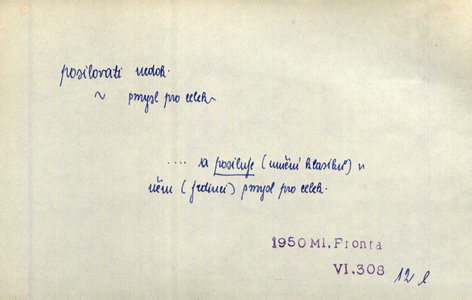 posilovati nedok.
~ smysl pro celek
.... a posiluje (umění klasiků) v
něm (jedinci) smysl pro celek.
1950 Ml. Fronta
VI.308 12 l